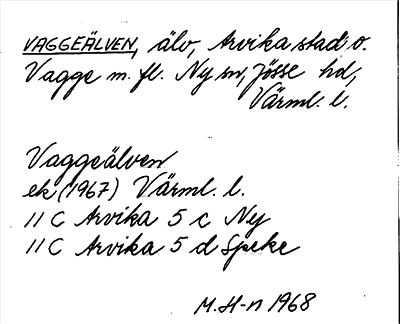 VAGGEÄLVEN, älv, Arvika stad o.
Vagge m. fl. Ny sn, Jösse hd,
Värml. l.
Vaggeälven
ek (1967) Värml. l.
11 C Arvika 5 c Ny
11 C Arvika 5 d Speke
M. H-n 1968